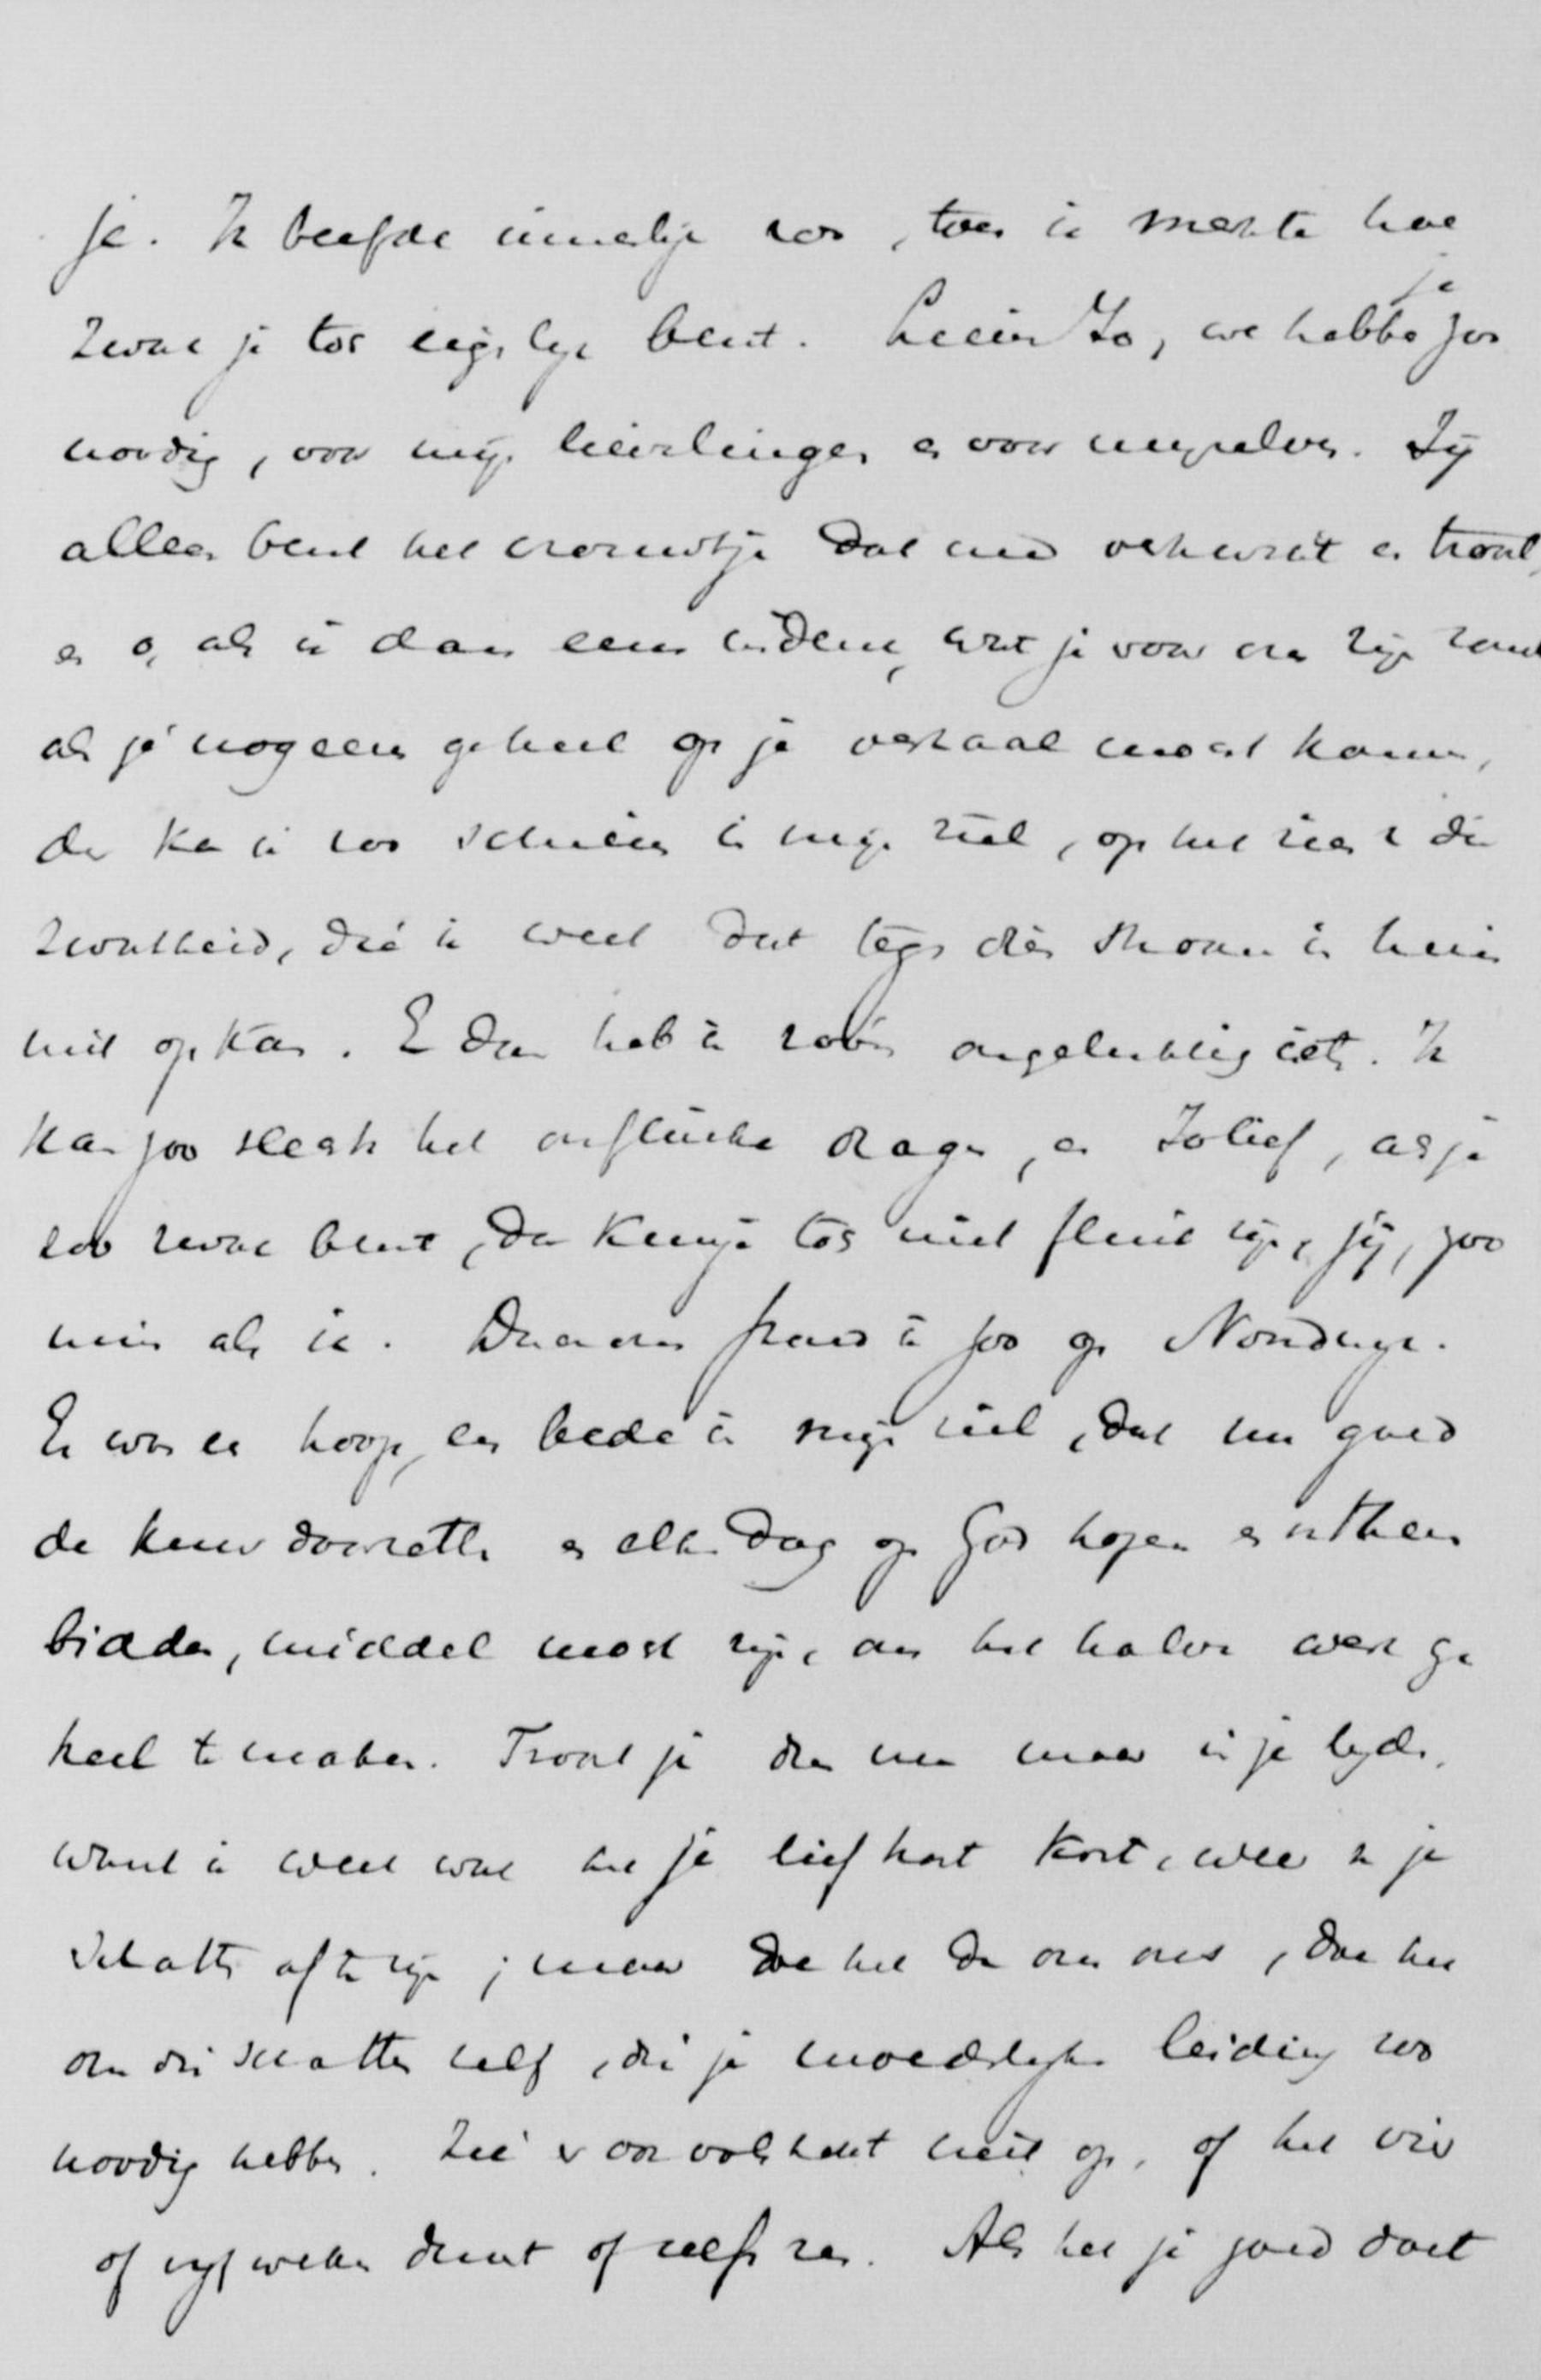 je. Ik beefde innerlijk zoo, toen ik merkte hoe
zwak je toch eigenlijk bent. Lieve Jo, we hebben je zoo
noodig, voor mijn lievelingen en voor mijzelven. Jij
alleen bent het vrouwtje dat me verkwikt en troost,
en o, als ik dan eens indenk, wat je voor me zijn zoudt
als je nog eens geheel op je verhaal mocht komen,
dan kan ik zoo schreien in mijn ziel, op het zien van die
zwakheid, die ik weet dat tegen dien stroom in huis
niet op kan. En dan heb ik zoo'n ongelukkig iets. Ik
kan zoo slecht het onflinke dragen, en Jolief, als je
zoo zwak bent, dan kun je toch niet flink zijn, jij, zoo
min als ik. Daarom hield ik zoo op Nordeney.
Er was een hoop, een bede in mijn ziel, dat nu goed
de kuur doorzetten en elken dag op God hopen en tot Hem
bidden, middel mocht zijn, om het halve werk ge
heel te maken. Troost je dan nu maar in je lijden,
want ik weet wat het je lief hart kost, weer van je
schatten af te zijn; maar doe het dan om ons, doe het
om die schatten zelf, die je moederlijke leiding zoo
noodig hebben. Zie er nu volstrekt niet op, of het vier
of vijf weken duurt of zelfs zes. Als het je goed doet